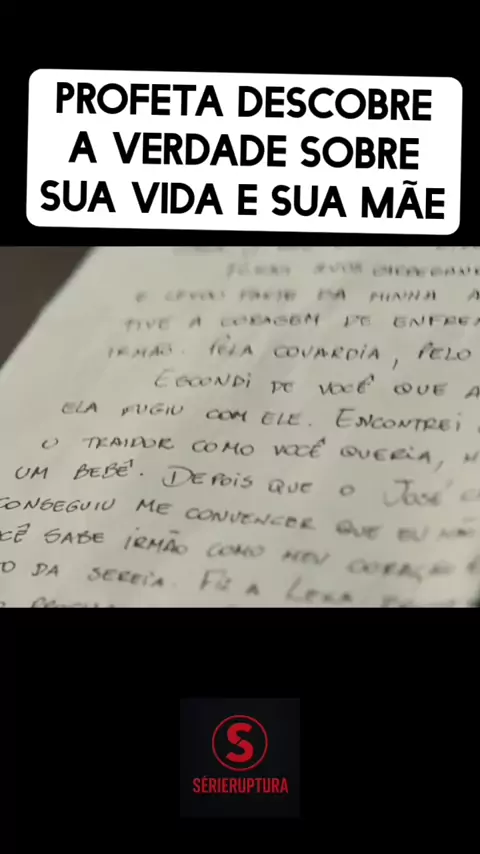 PROFETA DESCOBRE
A VERDADE SOBRE
SUA VIDA E SUA MÃE
E LEVOU PARTE DA MINHA A
TIVE A CORAGEM DE ENFRE
IRMÃO. PELA COVARDIA, PELO
ESCONDI DE VOCÊ QUE A
ELA FUGIU COM ELE. ENCONTREI
O TRAIDOR COMO VOCÊ QUERIA,
UM BEBÊ. DEPOIS QUE O JOSÉ
CONSEGUIU ME CONVENCER QUE EU NÃO
CÊ SABE IRMÃO COMO MEU CORAÇÃO
TO DA SEREIA. FIZ A
S
SÉRIERUPTURA